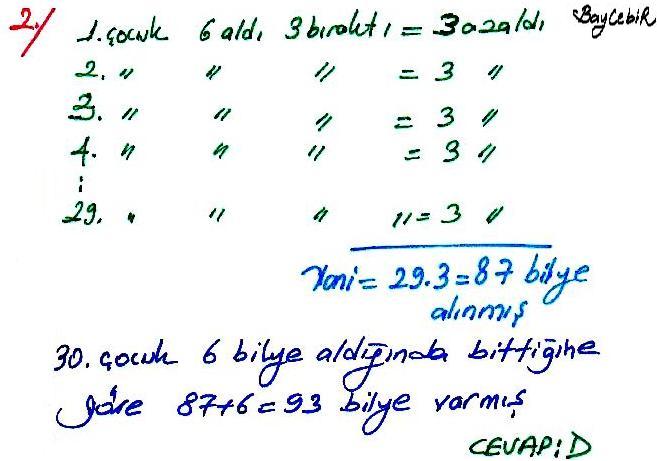 2./ 1. çocuk 6 aldı 3 bıraktı = 3 azaldı BayCebiR
2. " " " = 3 "
3. " " " = 3 "
4. " " " = 3 "
⋮
29. " " " " = 3 "
Yani = 29.3 = 87 bilye
alınmış
30. çocuk 6 bilye aldığında bittiğine
göre 87+6 = 93 bilye varmış
CEVAP: D